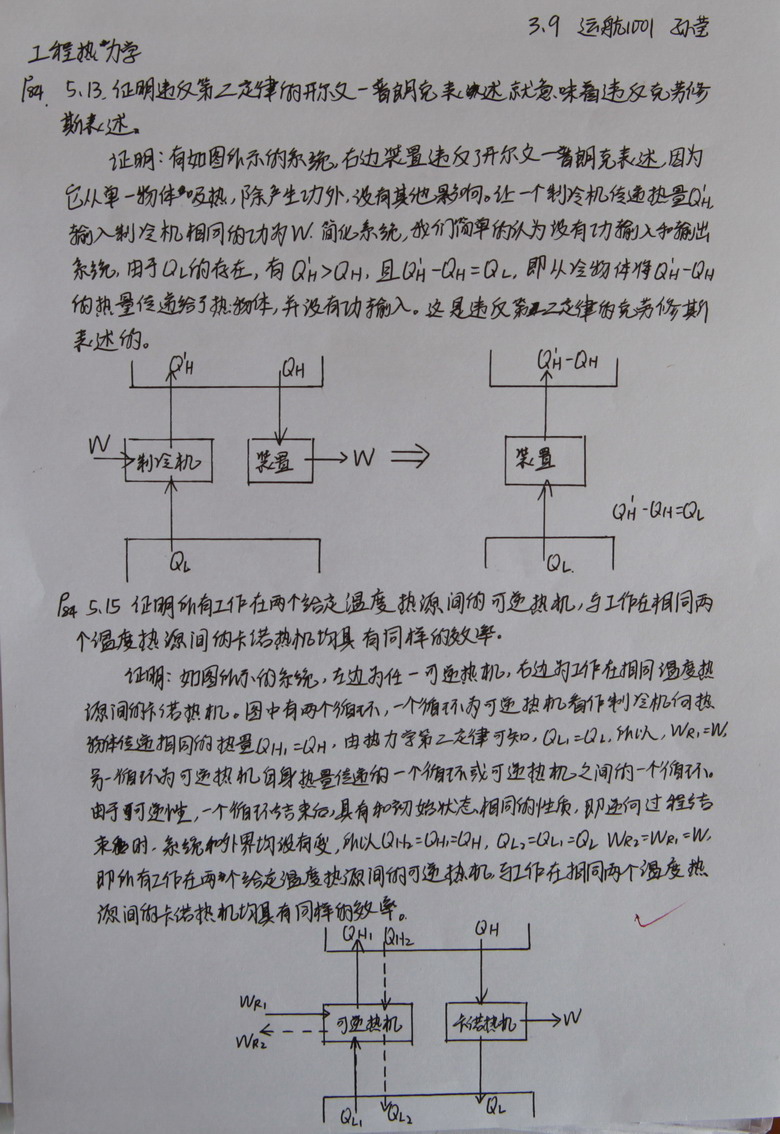 3.9 运航1001 孙莹
工程热力学
P84. 5.13. 证明违反第二定律的开尔文一普朗克表述就意味着违反克劳修
斯表述。
证明:有如图所示的系统,右边装置违反了开尔文一普朗克表述,因为
它从单一物体吸热,除产生功外,没有其他影响。让一个制冷机传递热量Q'H,
输入制冷机相同的功为W. 简化系统,我们简单的认为没有功输入和输出
系统,由于QL的存在,有Q'H>QH,且Q'H-QH=QL,即从冷物体将Q'H-QH
的热量传递给了热物体,并没有功输入。这是违反第二定律的克劳修斯
表述的。
Q'H QH Q'H-QH
W 制冷机 装置 W ⇒ 装置
Q'H-QH=QL
QL QL.
P84 5.15 证明所有工作在两个给定温度热源间的可逆热机,与工作在相同两
个温度热源间的卡诺热机均具有同样的效率。
证明:如图所示的系统,左边为任一可逆热机,右边为工作在相同温度热
源间的卡诺热机。图中有两个循环,一个循环为可逆热机看作制冷机向热
物体传递相同的热量QH1=QH,由热力学第二定律可知,QL1=QL,所以,WR1=W.
另一循环为可逆热机自身热量传递的一个循环或可逆热机之间的一个循环。
由于可逆性,一个循环结束后,具有和初始状态相同的性质,即逆向过程结
束时,系统和外界均没有变,所以QH2=QH1=QH,QL2=QL1=QL WR2=WR1=W.
即所有工作在两个给定温度热源间的可逆热机,与工作在相同两个温度热
源间的卡诺热机均具有同样的效率。
QH1 QH2 QH
WR1 可逆热机 卡诺热机 W
WR2
QL1 QL2 QL